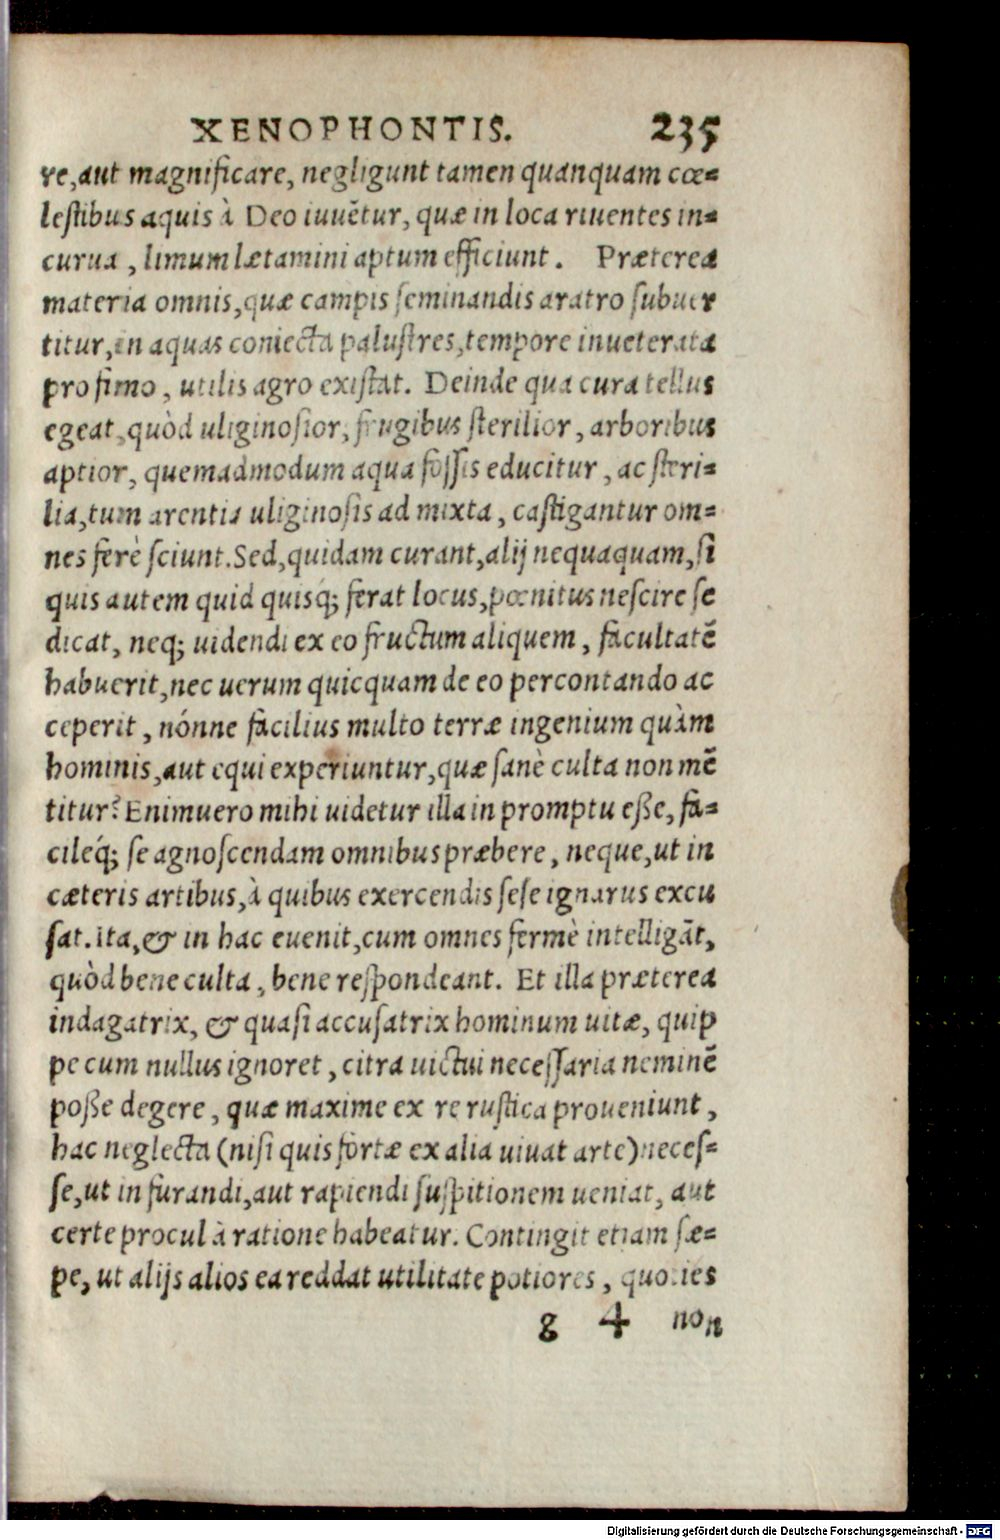 XENOPHONTIS. 235
re, aut magnificare, negligunt tamen quanquam cœ-
lestibus aquis à Deo iuuẽtur, quæ in loca riuentes in-
curua, limum lætamini aptum efficiunt. Præterea
materia omnis, quæ campis seminandis aratro subuer
titur, in aquas coniecta palustres, tempore inueterata
pro fimo, utilis agro existat. Deinde qua cura tellus
egeat, quòd uliginosior, frugibus sterilior, arboribus
aptior, quemadmodum aqua fossis educitur, ac steri-
lia, tum arentia uliginosis ad mixta, castigantur om-
nes ferè sciunt. Sed, quidam curant, alij nequaquam, si
quis autem quid quisq́; ferat locus, pœnitus nescire se
dicat, neq; uidendi ex eo fructum aliquem, facultatẽ
habuerit, nec uerum quicquam de eo percontando ac
ceperit, nónne facilius multo terræ ingenium quàm
hominis, aut equi experiuntur, quæ sanè culta non mẽ
titur? Enimuero mihi uidetur illa in promptu eße, fa-
cileq́; se agnoscendam omnibus præbere, neque, ut in
cæteris artibus, à quibus exercendis sese ignarus excu
sat. ita, & in hac euenit, cum omnes fermè intelligãt,
quòd bene culta, bene respondeant. Et illa præterea
indagatrix, & quasi accusatrix hominum uitæ, quip
pe cum nullus ignoret, citra uictui necessaria neminẽ
poße degere, quæ maxime ex re rustica proueniunt,
hac neglecta (nisi quis fortæ ex alia uiuat arte) neces-
se, ut in furandi, aut rapiendi suspitionem ueniat, aut
certe procul à ratione habeatur. Contingit etiam sæ-
pe, ut alijs alios ea reddat utilitate potiores, quoties
g 4 non
Digitalisierung gefördert durch die Deutsche Forschungsgemeinschaft - DFG